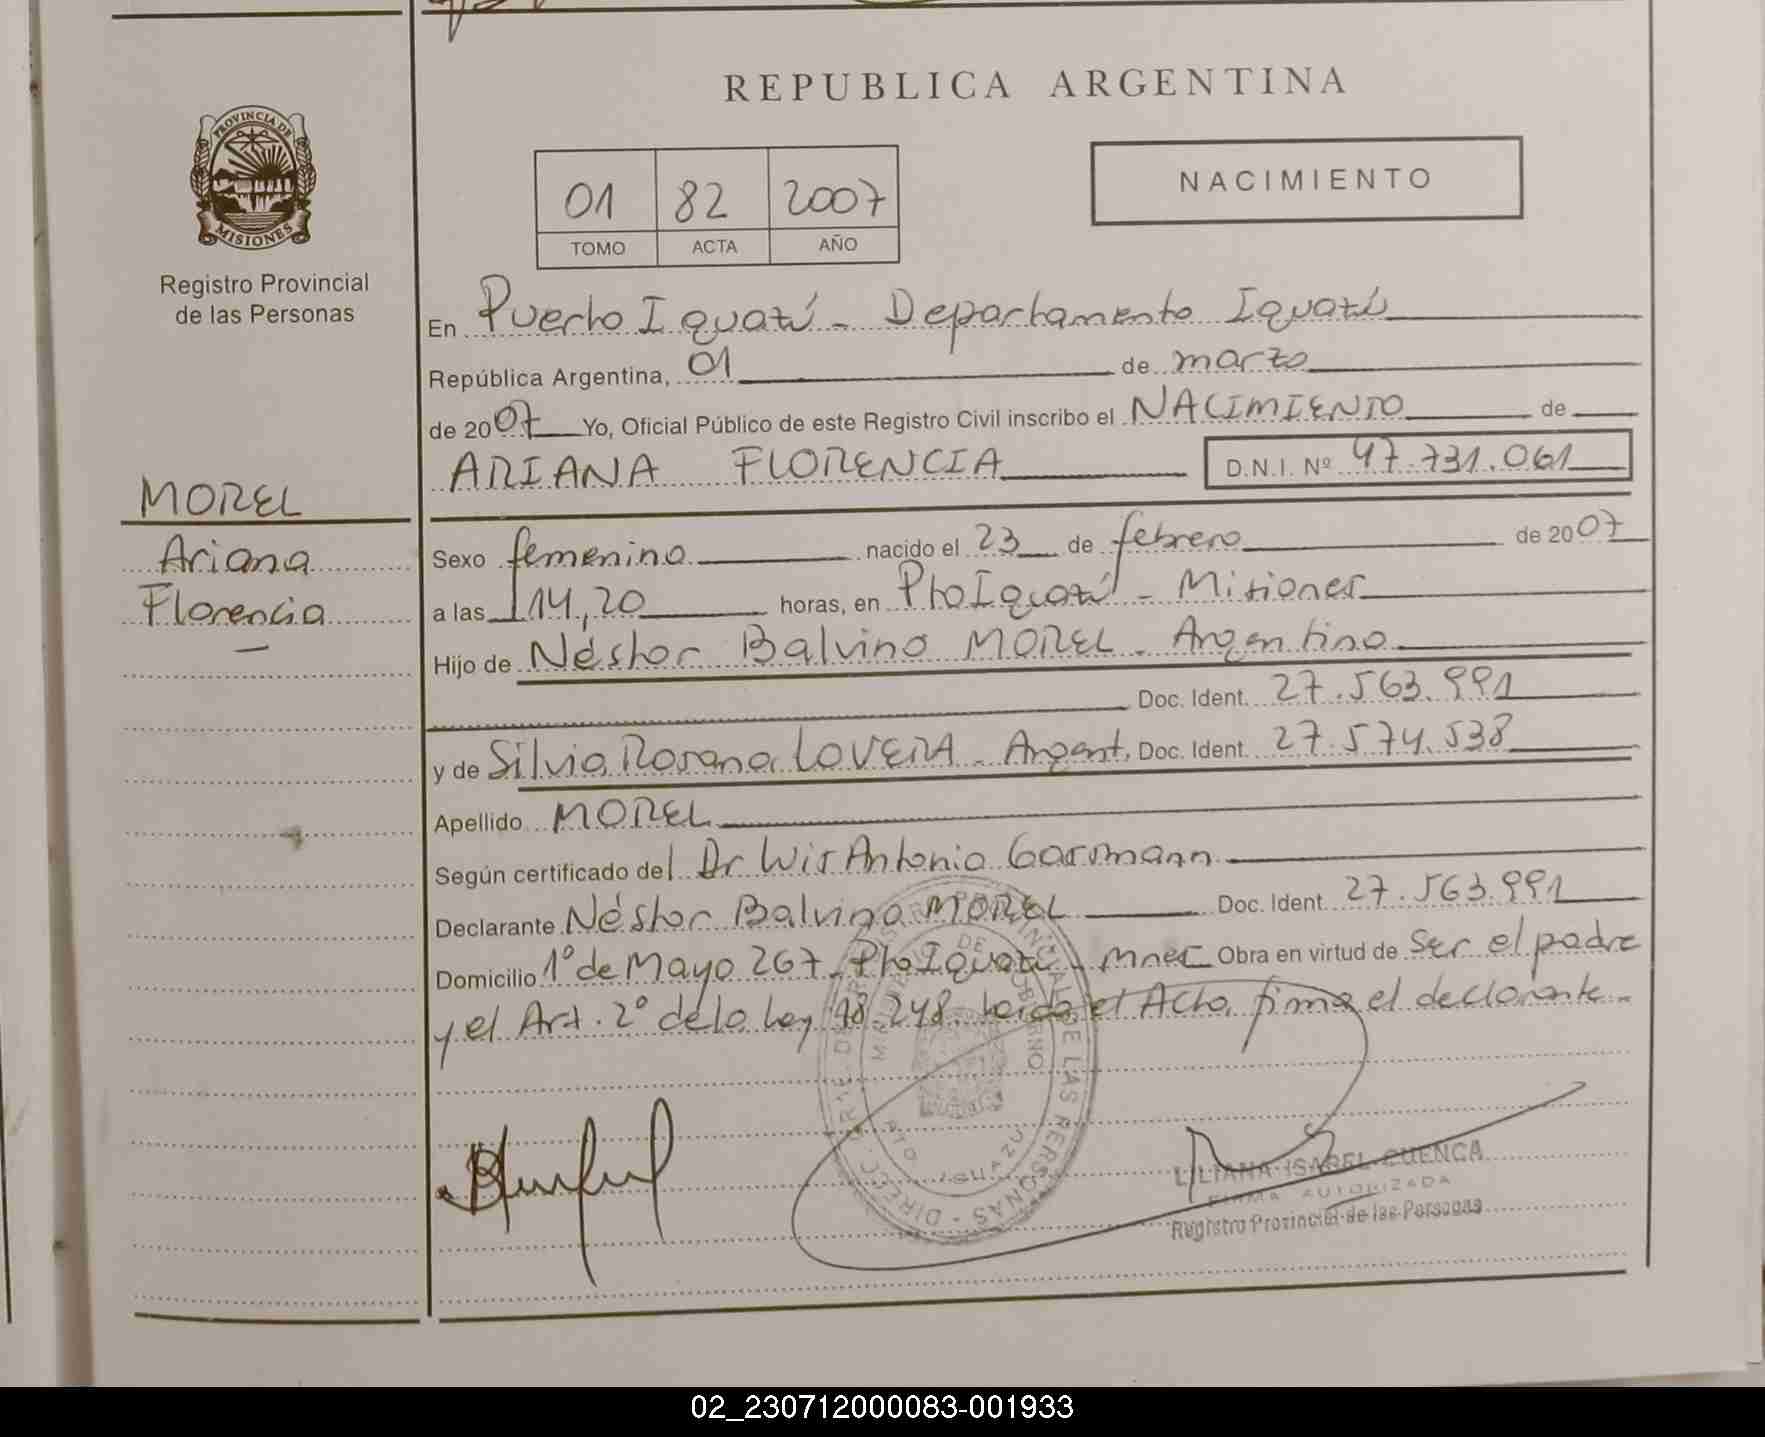 REPUBLICA ARGENTINA
PROVINCIA DE
MISIONES
Registro Provincial
de las Personas
01 82 2007
TOMO ACTA AÑO
NACIMIENTO
En Puerto Iguazú - Departamento Iguazú
República Argentina, 01 de marzo
de 2007 Yo, Oficial Público de este Registro Civil inscribo el NACIMIENTO de
ARIANA FLORENCIA D.N.I. Nº 47.731.061
MOREL
Ariana
Florencia
Sexo femenino nacido el 23 de febrero de 2007
a las 14,20 horas, en Pto Iguazú - Misiones
Hijo de Néstor Balvino MOREL - Argentino
Doc. Ident. 27.563.991
y de Silvia Rosana LOVERA - Argent. Doc. Ident. 27.574.538
Apellido MOREL
Según certificado del Dr Antonio
Declarante Néstor Balvino MOREL Doc. Ident. 27.563.991
Domicilio 1º de Mayo 267 - Pto Iguazú - Mnes Obra en virtud de ser el padre
y el Art. 2º de la Ley 18.248. Leida el Acta, firma el declarante -
DIREC. GRAL. DEL REGISTRO PROVINCIAL DE LAS PERSONAS
MINISTERIO DE GOBIERNO
PTO. IGUAZU
LILIANA ISABEL CUENCA
FIRMA AUTORIZADA
Registro Provincial de las Personas
02_230712000083-001933